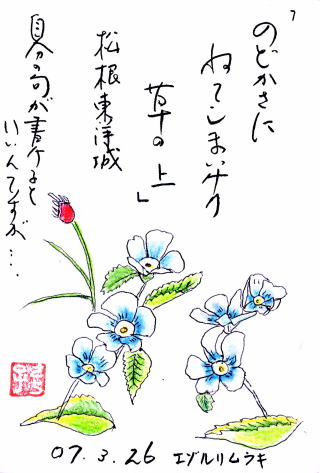 「のどかさに
ねてしまいけり
草の上」
松根東洋城
自分の句が書けると
いいんですが…
07.3.26 エゾルリムラサキ